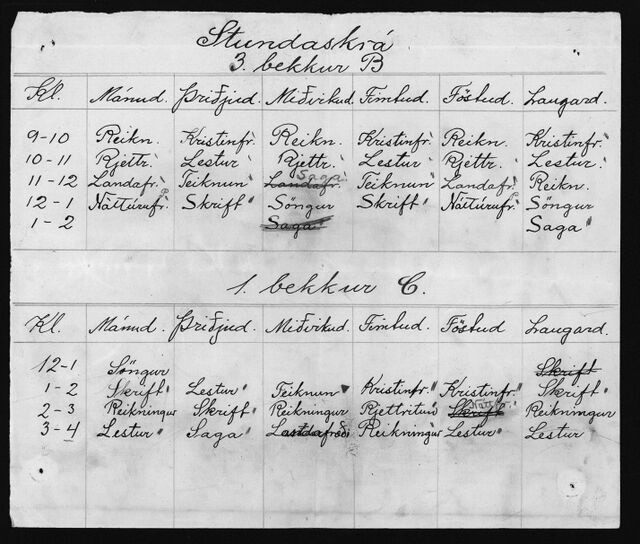 Stundaskrá
3. bekkur B
Kl. Mánud. Þriðjud. Miðvikud. Fimtud. Föstud. Laugard.
9-10 Reikn. Kristinfr. Reikn. Kristinfr. Reikn. Kristinfr.
10-11 Rjettr. Lestur Rjettr. Lestur Rjettr. Lestur
Saga
11-12 Landafr. Teiknun Landafr. Teiknun Landafr. Reikn.
12-1 Náttúrufr. Skrift Söngur Skrift Náttúrufr. Söngur
1-2 Saga Saga
1. bekkur C.
Kl. Mánud. Þriðjud. Miðvikud. Fimtud. Föstud Laugard.
12-1 Söngur Skrift
1-2 Skrift Lestur Teiknun Kristinfr. Kristinfr. Skrift
2-3 Reikningur Skrift Reikningur Rjettritun Skrift Reikningur
3-4 Lestur Saga Reikningur Lestur Lestur